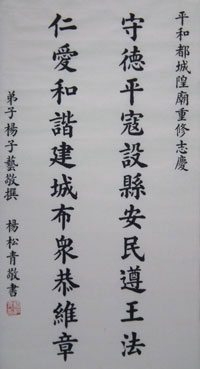 平和都城隍廟重修志慶
守德平寇設縣安民遵王法
仁愛和諧建城布衆恭維章
弟子楊子藝敬撰 楊松青敬書